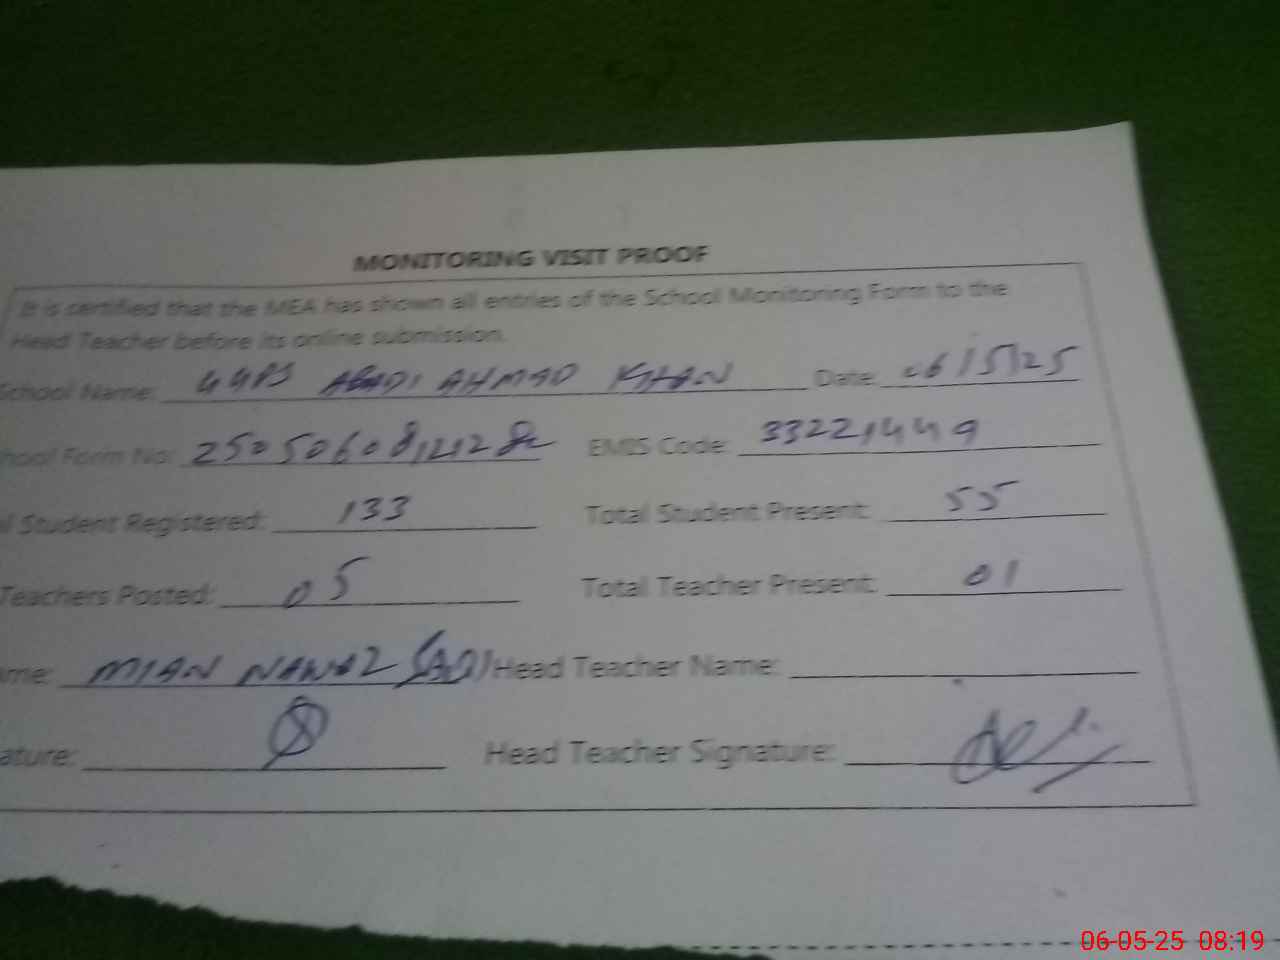 MONITORING VISIT PROOF
It is certified that the MEA has shown all entries of the School Monitoring Form to the
Head Teacher before its online submission.
School Name: GGPS ABADI AHMAD KHAN Date: 06/5/25
hool Form No: EMIS Code: 33221449
l Student Registered: 133 Total Student Present: 55
Teachers Posted: 05 Total Teacher Present: 01
me: MIAN NAWAZ Head Teacher Name:
ature: Head Teacher Signature:
06-05-25 08:19